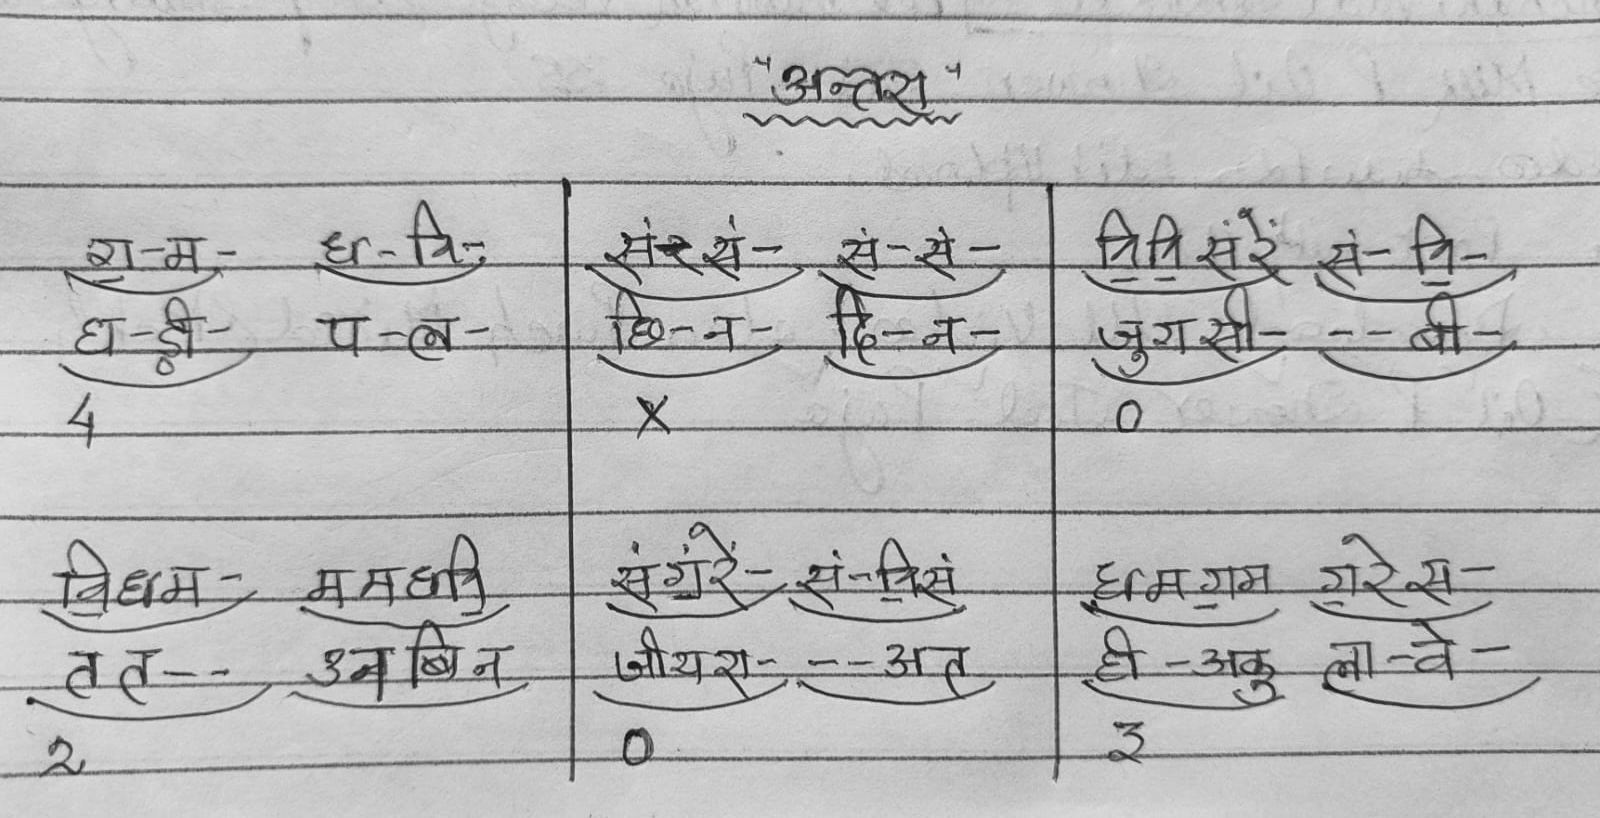 "अन्तरा"
ग॒-म- ध-नि॒- सं-सं- सं-सं- नि॒नि॒संरें सं-नि॒-
घ-ड़ी- प-ल- छि-न- दि-न- जुगसी- --बी-
4 X 0
नि॒धम- ममधनि॒ संगं॒रें- सं-नि॒सं धमग॒म ग॒रेस-
तत-- उनबिन जीयरा- --अत ही-अकु ला-वे-
2 0 3